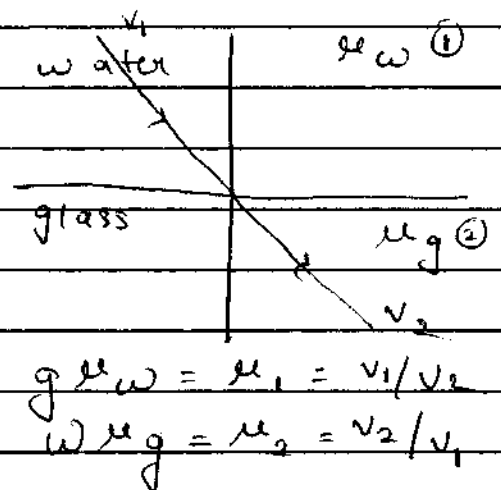 v₁
water μ_w ①
glass
μ_g ②
v₂
g μ_w = μ₁ = v₁/v₂
w μ_g = μ₂ = v₂/v₁